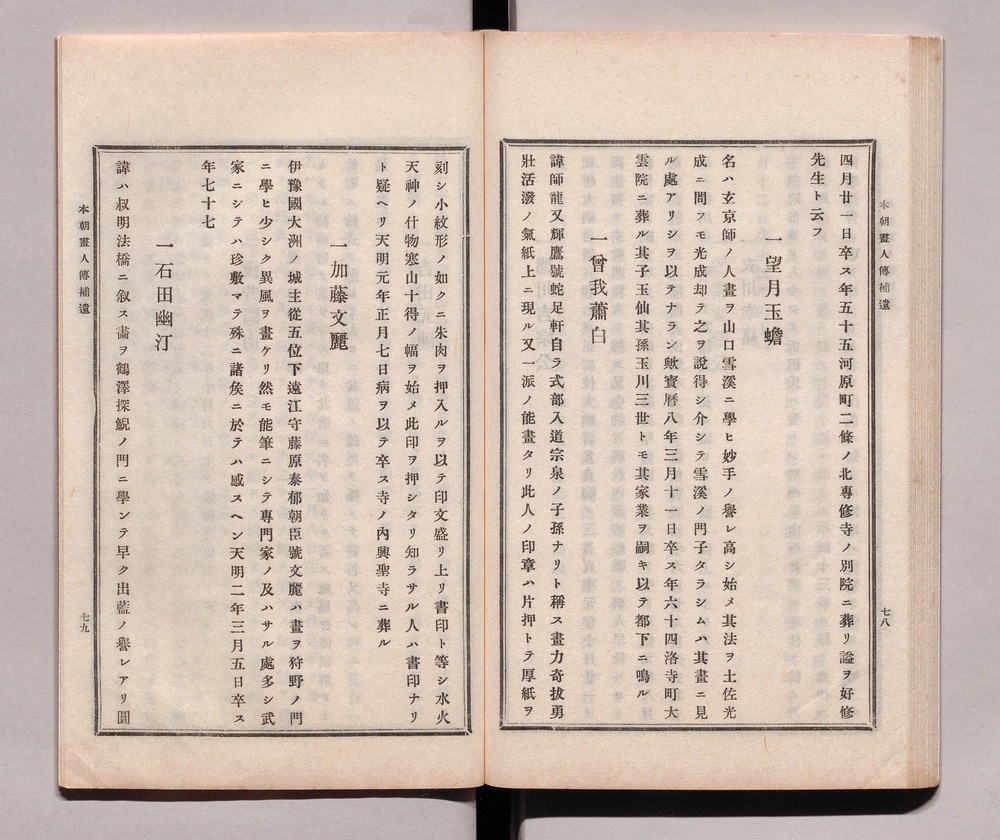 本朝畫人傳補遺
七八
四月廿一日卒ス年五十五河原町二條ノ北專修寺ノ別院ニ葬リ謚ヲ好修
先生ト云フ
一望月玉蟾
名ハ玄京師ノ人畫ヲ山口雪溪ニ學ヒ妙手ノ譽レ高シ始メ其法ヲ土佐光
成ニ問フモ光成却テ之ヲ說得シ介シテ雪溪ノ門子タラシムハ其畫ニ見
ル處アリシヲ以テナラン歟寶曆八年三月十一日卒ス年六十四洛寺町大
雲院ニ葬ル其子玉仙其孫玉川三世トモ其家業ヲ嗣キ以テ都下ニ鳴ル
一曾我蕭白
諱師龍又輝鷹號蛇足軒自ラ式部入道宗泉ノ子孫ナリト稱ス畫力奇拔勇
壯活潑ノ氣紙上ニ現ル又一派ノ能畫タリ此人ノ印章ハ片押トテ厚紙ヲ
刻シ小紋形ノ如クニ朱肉ヲ押入ルヲ以テ印文盛リ上リ書印ト等シ水火
天神ノ什物寒山十得ノ幅ヲ始メ此印ヲ押シタリ知ラサル人ハ書印ナリ
ト疑ヘリ天明元年正月七日病ヲ以テ卒ス寺ノ內興聖寺ニ葬ル
一加藤文麗
伊豫國大洲ノ城主從五位下遠江守藤原泰郁朝臣號文麗ハ畫ヲ狩野ノ門
ニ學ヒ少シク異風ヲ畫ケリ然モ能筆ニシテ專門家ノ及ハサル處多シ武
家ニシテハ珍敷マテ殊ニ諸矦ニ於テハ感スヘシ天明二年三月五日卒ス
年七十七
一石田幽汀
諱ハ叔明法橋ニ叙ス畵ヲ鶴澤探鯢ノ門ニ學ンテ早ク出藍ノ譽レアリ圓
本朝畫人傳補遺
七九